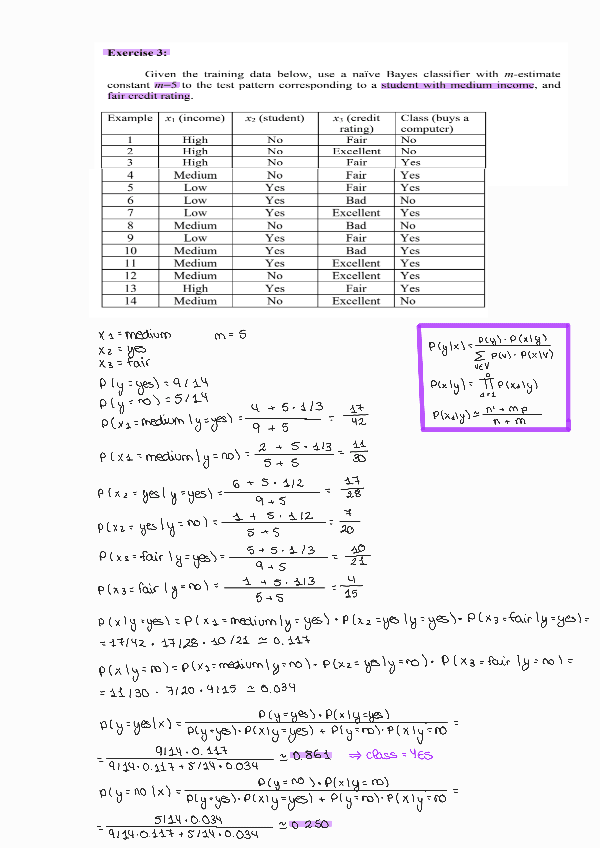 Exercise 3:
Given the training data below, use a naïve Bayes classifier with m-estimate
constant m=5 to the test pattern corresponding to a student with medium income, and
fair credit rating.
Example x₁ (income) x₂ (student) x₃ (credit rating) Class (buys a computer)
1 High No Fair No
2 High No Excellent No
3 High No Fair Yes
4 Medium No Fair Yes
5 Low Yes Fair Yes
6 Low Yes Bad No
7 Low Yes Excellent Yes
8 Medium No Bad No
9 Low Yes Fair Yes
10 Medium Yes Bad Yes
11 Medium Yes Excellent Yes
12 Medium No Excellent Yes
13 High Yes Fair Yes
14 Medium No Excellent No
x1 = medium m = 5
x2 = yes
x3 = fair
P(y|x) = p(y)·P(x|y) / Σ v∈V P(v)·P(x|v)
P(x|y) = ∏ d=1 D P(xd|y)
P(xd|y) ≃ n' + mp / n + m
P(y=yes) = 9/14
P(y=no) = 5/14
P(x1=medium|y=yes) = 4 + 5·1/3 / 9 + 5 = 17/42
P(x1=medium|y=no) = 2 + 5·1/3 / 5 + 5 = 11/30
P(x2=yes|y=yes) = 6 + 5·1/2 / 9 + 5 = 17/28
P(x2=yes|y=no) = 1 + 5·1/2 / 5 + 5 = 7/20
P(x3=fair|y=yes) = 5 + 5·1/3 / 9 + 5 = 10/21
P(x3=fair|y=no) = 1 + 5·1/3 / 5 + 5 = 4/15
P(x|y=yes) = P(x1=medium|y=yes)·P(x2=yes|y=yes)·P(x3=fair|y=yes) =
= 17/42 · 17/28 · 10/21 ≃ 0.117
P(x|y=no) = P(x1=medium|y=no)·P(x2=yes|y=no)·P(x3=fair|y=no) =
= 11/30 · 7/20 · 4/15 ≃ 0.034
P(y=yes|x) = P(y=yes)·P(x|y=yes) / P(y=yes)·P(x|y=yes) + P(y=no)·P(x|y=no =
= 9/14·0.117 / 9/14·0.117 + 5/14·0.034 ≃ 0.861 ⇒ class = YES
P(y=no|x) = P(y=no)·P(x|y=no) / P(y=yes)·P(x|y=yes) + P(y=no)·P(x|y=no =
= 5/14·0.034 / 9/14·0.117 + 5/14·0.034 ≃ 0.250